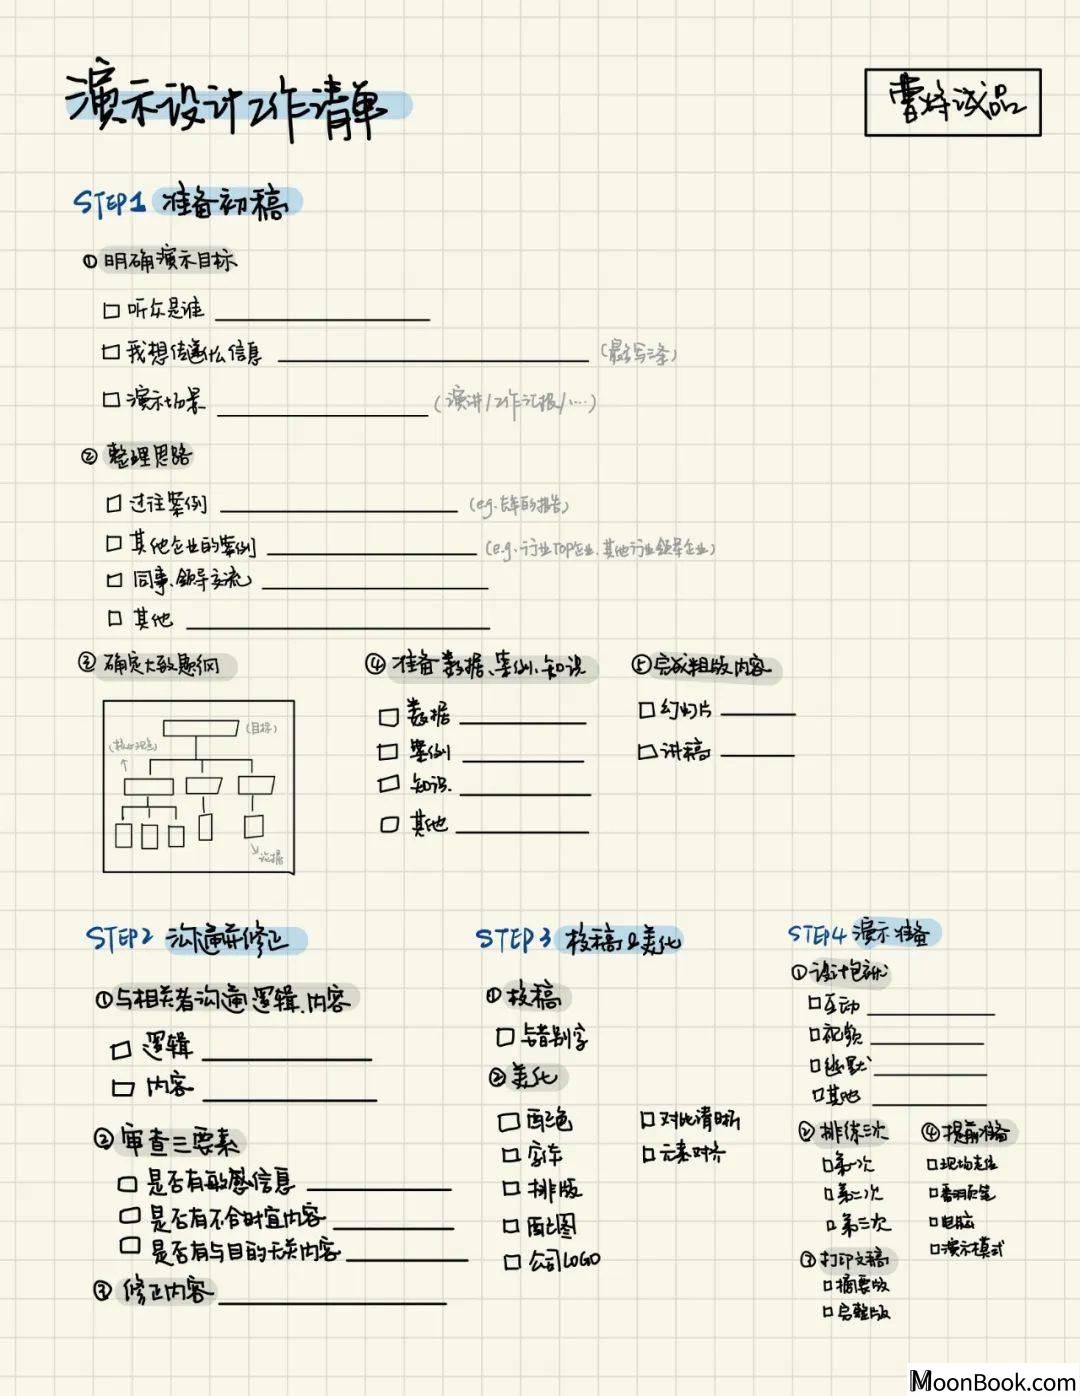 演示设计工作清单
曹将诚品
STEP1 准备初稿
① 明确演示目标
听众是谁
我想传递什么信息 (最多写三条)
演示场景 (演讲/工作汇报/····)
② 整理思路
过往案例 (e.g.去年的报告)
其他企业的案例 (e.g.行业TOP企业、其他行业领导企业)
同事、领导交流
其他
③ 确定大致题纲
(目标)
(核心观点)
论据
④ 准备数据、案例、知识
数据
案例
知识
其他
⑤ 完成粗版内容
幻灯片
讲稿
STEP2 沟通并修正
① 与相关者沟通逻辑、内容
逻辑
内容
② 审查三要素
是否有敏感信息
是否有不合时宜内容
是否有与目的无关内容
③ 修正内容
STEP3 校稿&美化
① 校稿
错别字
② 美化
配色
字体
排版
配图
公司LOGO
对比清晰
元素对齐
STEP4 演示准备
① 设计包袱
互动
视频
幽默
其他
② 排练三次
第一次
第二次
第三次
③ 打印文稿
摘要版
完整版
④ 提前准备
现场走位
翻页笔
电脑
演示模式
MoonBook.com